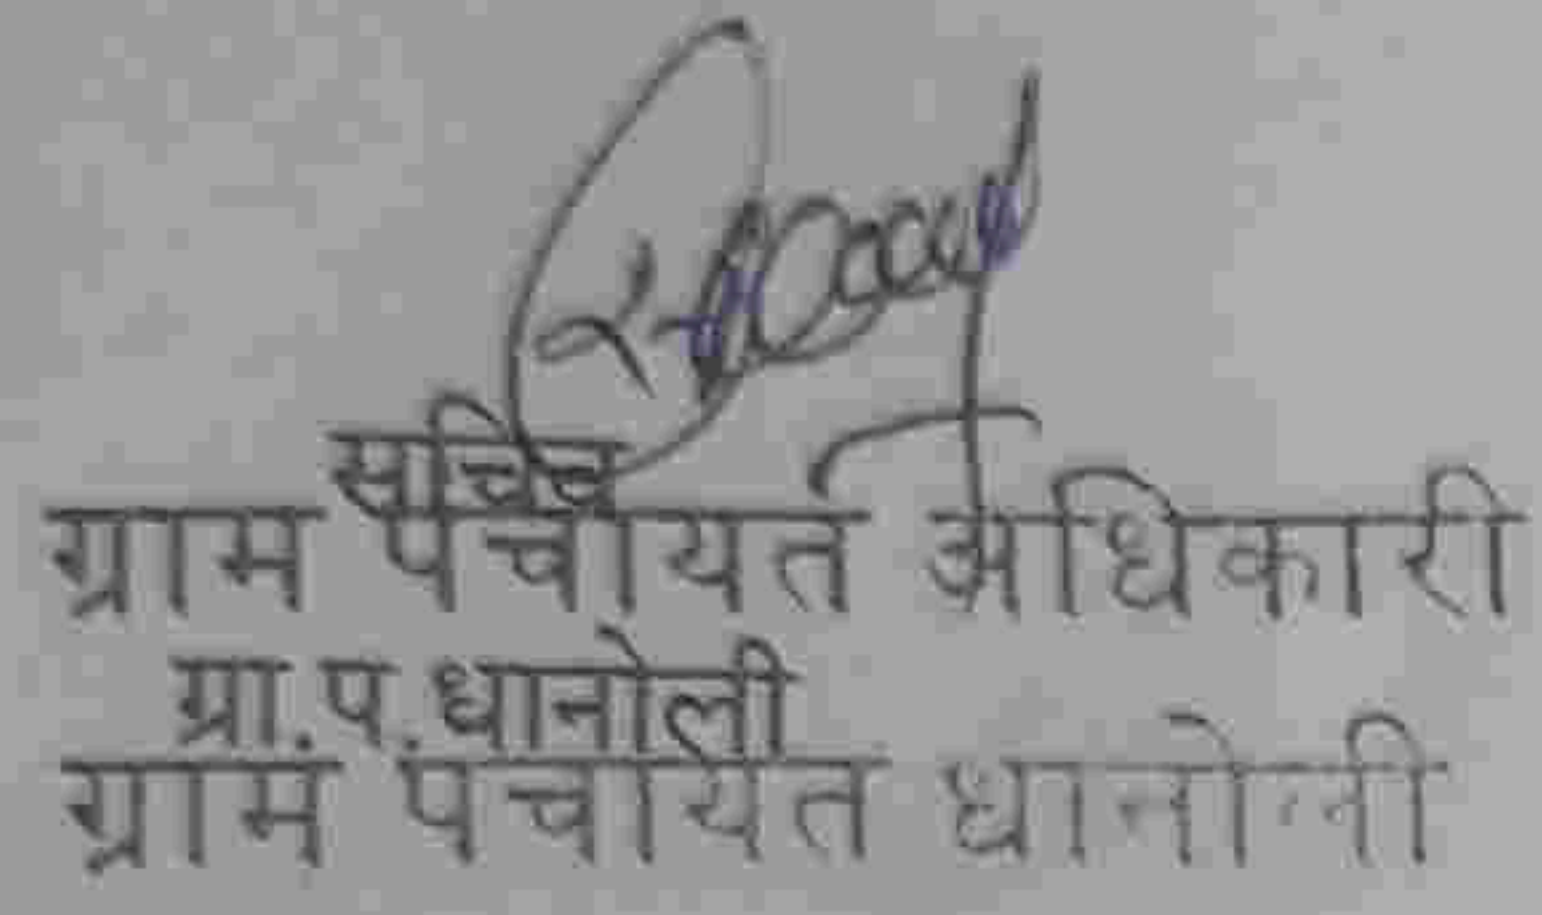 सचिव
ग्राम पंचायत अधिकारी
ग्रा.प.धानोली
ग्राम पंचायत धानोली